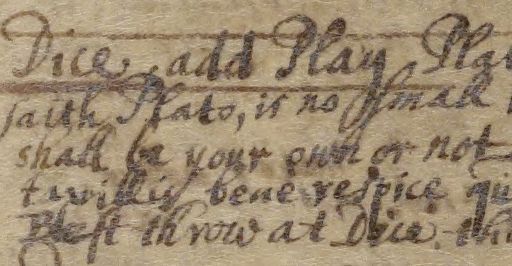 Dice, add Play Pla
saith Plato, is no small
shall be your own or not
bene respice
Best throw at Dice. thi